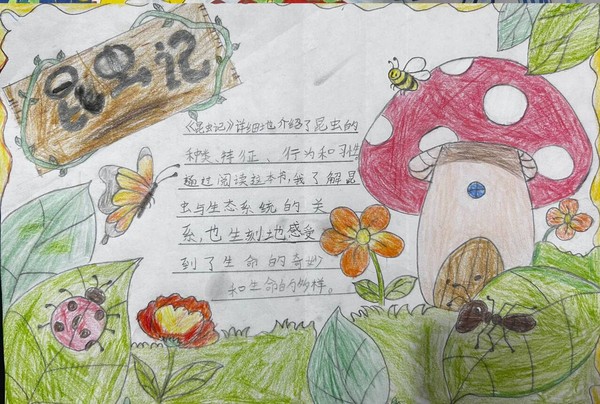 昆虫记
《昆虫记》详细地介绍了昆虫的
种类、特征、行为和习性
通过阅读这本书,我了解昆
虫与生态系统的关
系,也生刻地感受
到了生命的奇妙
和生命的多样。